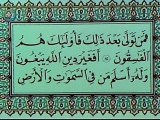 فَمَن تَوَلَّىٰ بَعْدَ ذَٰلِكَ فَأُولَٰئِكَ هُمُ
الْفَاسِقُونَ أَفَغَيْرَ دِينِ اللَّهِ يَبْغُونَ
وَلَهُ أَسْلَمَ مَن فِي السَّمَاوَاتِ وَالْأَرْضِ